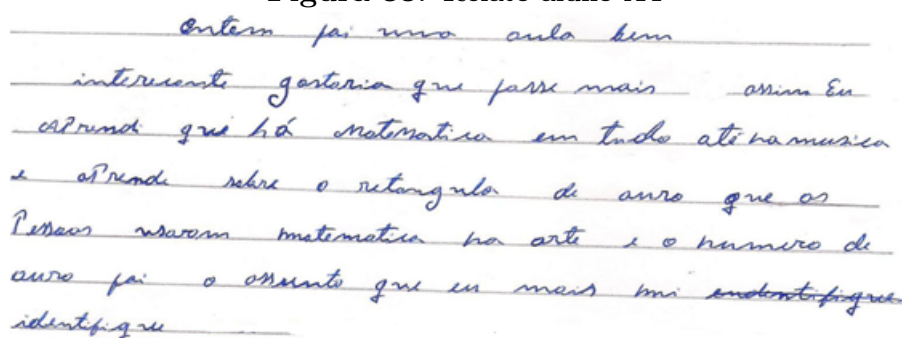 ontem foi uma aula bem
interesante gostaria que fosse mais assim Eu
aPrendi que há matematica em tudo até na musica
e aPrende sobre o retangulo de auro que as
Pessoas usaram matematica na arte e o numero de
auro foi o assunto que eu mais mi endentifique
identifique